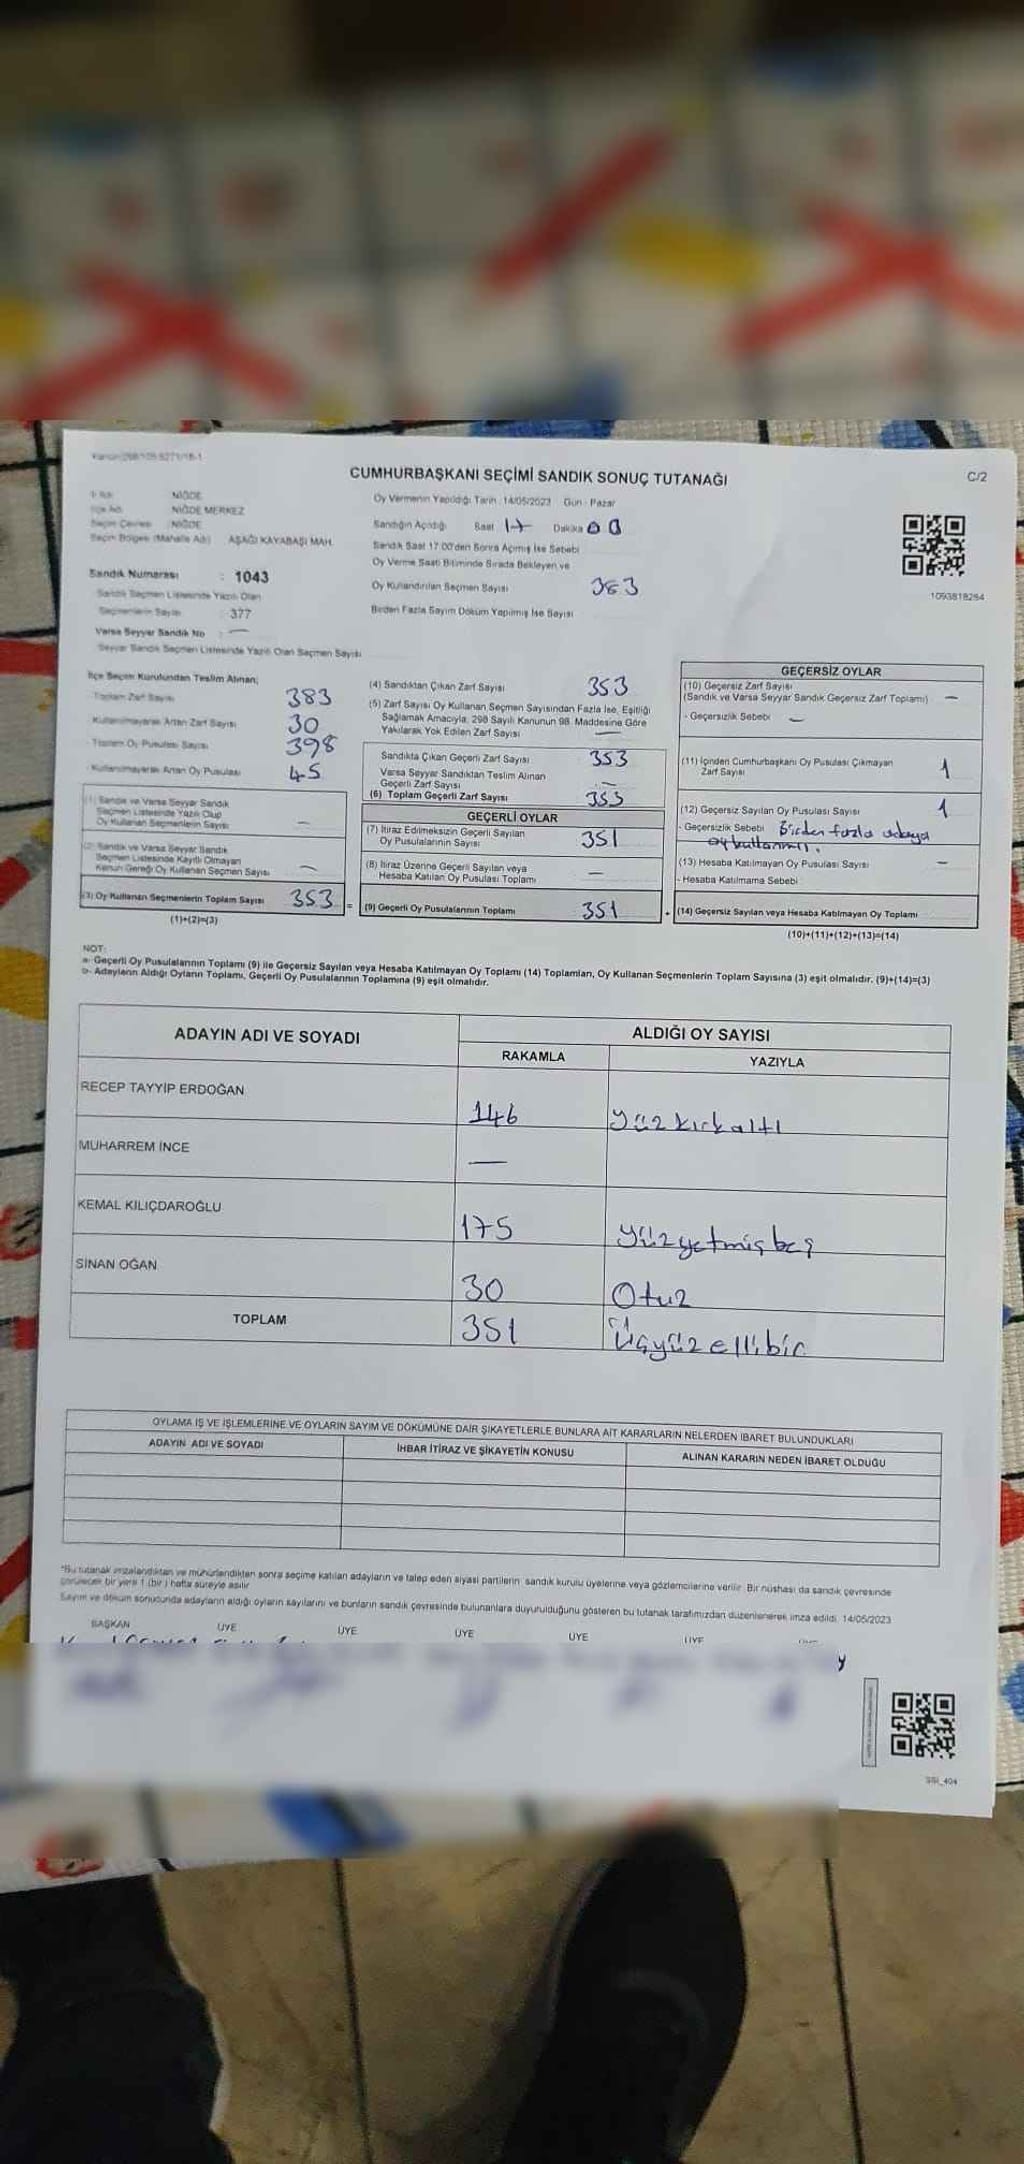 CUMHURBAŞKANI SEÇİMİ SANDIK SONUÇ TUTANAĞI
C/2
İl Adı NİĞDE
İlçe Adı NİĞDE MERKEZ
Seçim Çevresi NİĞDE
Seçim Bölgesi (Mahalle Adı) AŞAĞI KAYABAŞI MAH.
Sandık Numarası : 1043
Sandık Seçmen Listesinde Yazılı Olan
Seçmenlerin Sayısı : 377
Varsa Seyyar Sandık No : —
Seyyar Sandık Seçmen Listesinde Yazılı Olan Seçmen Sayısı
Oy Vermenin Yapıldığı Tarih : 14/05/2023 Gün : Pazar
Sandığın Açıldığı Saat 17 Dakika 00
Sandık Saat 17:00'den Sonra Açılmış İse Sebebi
Oy Verme Saati Bitiminde Sırada Bekleyen ve
Oy Kullandırılan Seçmen Sayısı 353
Birden Fazla Sayım Döküm Yapılmış İse Sayısı
1093818284
İlçe Seçim Kurulundan Teslim Alınan;
Toplam Zarf Sayısı 383
Kullanılmayarak Artan Zarf Sayısı 30
- Toplam Oy Pusulası Sayısı 398
- Kullanılmayarak Artan Oy Pusulası 45
(1) Sandık ve Varsa Seyyar Sandık
Seçmen Listesinde Yazılı Olup
Oy Kullanan Seçmenlerin Sayısı —
(2) Sandık ve Varsa Seyyar Sandık
Seçmen Listesinde Kayıtlı Olmayan
Kanun Gereği Oy Kullanan Seçmen Sayısı —
(3) Oy Kullanan Seçmenlerin Toplam Sayısı 353 =
(1)+(2)=(3)
(4) Sandıktan Çıkan Zarf Sayısı 353
(5) Zarf Sayısı Oy Kullanan Seçmen Sayısından Fazla İse, Eşitliği
Sağlamak Amacıyla, 298 Sayılı Kanunun 98. Maddesine Göre
Yakılarak Yok Edilen Zarf Sayısı —
Sandıkta Çıkan Geçerli Zarf Sayısı 353
Varsa Seyyar Sandıktan Teslim Alınan
Geçerli Zarf Sayısı —
(6) Toplam Geçerli Zarf Sayısı 353
GEÇERLİ OYLAR
(7) İtiraz Edilmeksizin Geçerli Sayılan
Oy Pusulalarının Sayısı 351
(8) İtiraz Üzerine Geçerli Sayılan veya
Hesaba Katılan Oy Pusulası Toplamı —
(9) Geçerli Oy Pusulalarının Toplamı 351 +
GEÇERSİZ OYLAR
(10) Geçersiz Zarf Sayısı
(Sandık ve Varsa Seyyar Sandık Geçersiz Zarf Toplamı) —
- Geçersizlik Sebebi —
(11) İçinden Cumhurbaşkanı Oy Pusulası Çıkmayan
Zarf Sayısı 1
(12) Geçersiz Sayılan Oy Pusulası Sayısı 1
- Geçersizlik Sebebi Birden fazla adaya
oy kullanmış.
(13) Hesaba Katılmayan Oy Pusulası Sayısı —
- Hesaba Katılmama Sebebi
(14) Geçersiz Sayılan veya Hesaba Katılmayan Oy Toplamı
(10)+(11)+(12)+(13)=(14)
NOT:
a- Geçerli Oy Pusulalarının Toplamı (9) ile Geçersiz Sayılan veya Hesaba Katılmayan Oy Toplamı (14) Toplamları, Oy Kullanan Seçmenlerin Toplam Sayısına (3) eşit olmalıdır. (9)+(14)=(3)
b- Adayların Aldığı Oyların Toplamı, Geçerli Oy Pusulalarının Toplamına (9) eşit olmalıdır.
ADAYIN ADI VE SOYADI ALDIĞI OY SAYISI
RAKAMLA YAZIYLA
RECEP TAYYİP ERDOĞAN 146 yüz kırk altı
MUHARREM İNCE —
KEMAL KILIÇDAROĞLU 175 yüz yetmiş beş
SİNAN OĞAN 30 Otuz
TOPLAM 351 Üçyüz elli bir
OYLAMA İŞ VE İŞLEMLERİNE VE OYLARIN SAYIM VE DÖKÜMÜNE DAİR ŞİKAYETLERLE BUNLARA AİT KARARLARIN NELERDEN İBARET BULUNDUKLARI
ADAYIN ADI VE SOYADI İHBAR İTİRAZ VE ŞİKAYETİN KONUSU ALINAN KARARIN NEDEN İBARET OLDUĞU
*Bu tutanak imzalandıktan ve mühürlendikten sonra seçime katılan adayların ve talep eden siyasi partilerin sandık kurulu üyelerine veya gözlemcilerine verilir. Bir nüshası da sandık çevresinde
görülecek bir yere 1 (bir) hafta süreyle asılır
Sayım ve döküm sonucunda adayların aldığı oyların sayılarını ve bunların sandık çevresinde bulunanlara duyurulduğunu gösteren bu tutanak tarafımızdan düzenlenerek imza edildi. 14/05/2023
BAŞKAN ÜYE ÜYE ÜYE ÜYE ÜYE
SSI_404